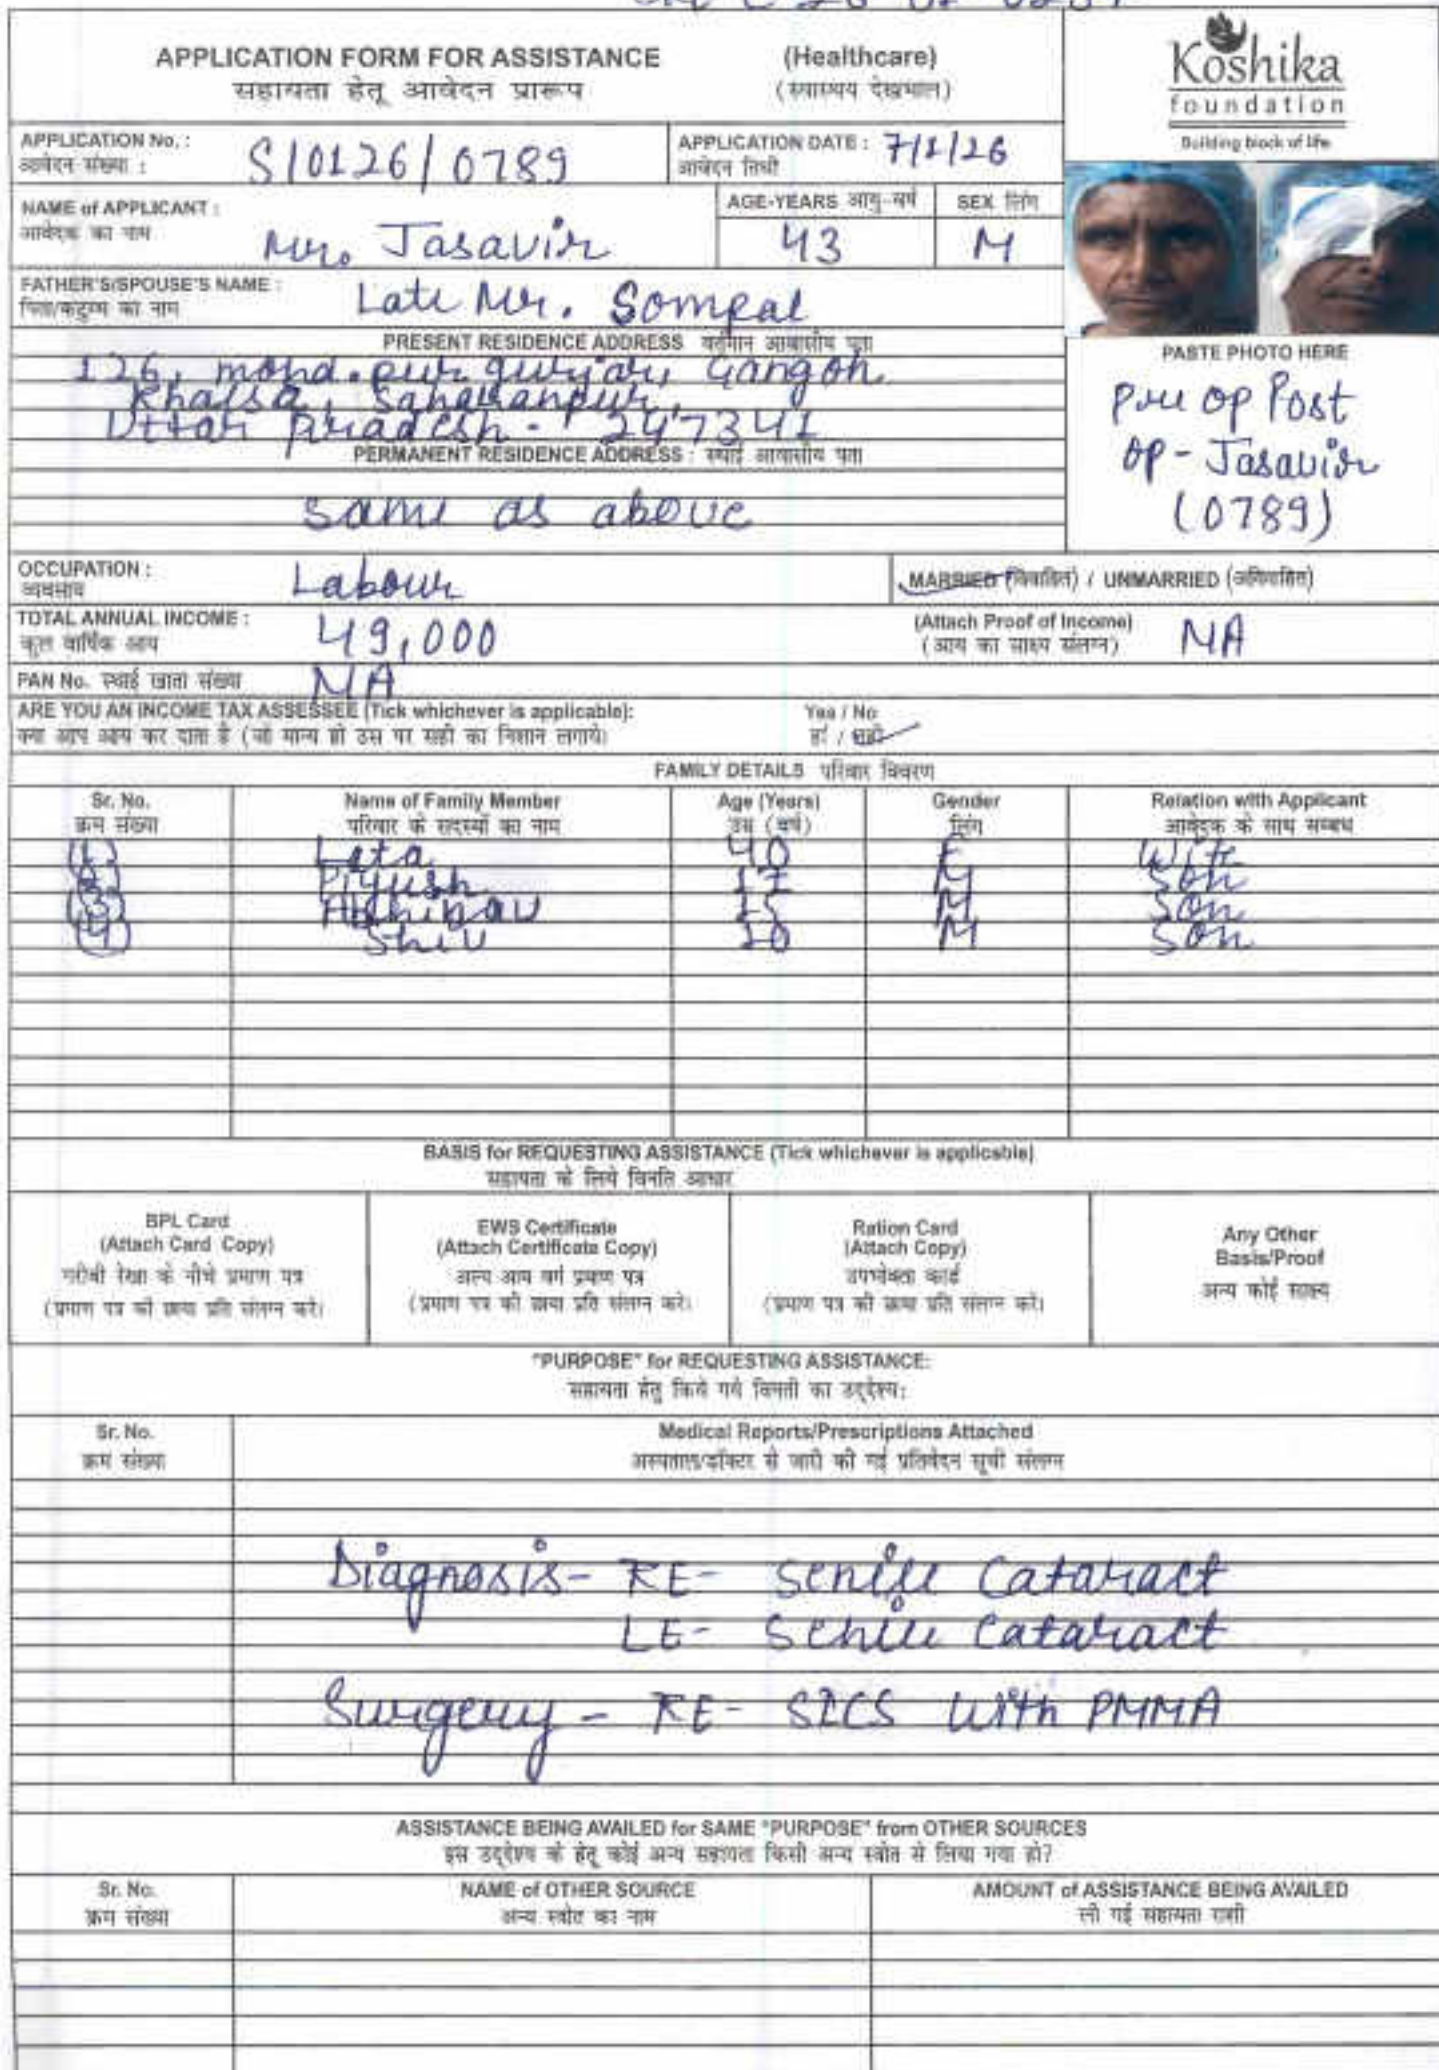 APPLICATION FORM FOR ASSISTANCE (Healthcare)
सहायता हेतू आवेदन प्रारूप (स्वास्थ्य देखभाल)
Koshika
foundation
Building block of life
APPLICATION No. : S/0126/0789
आवेदन संख्या :
APPLICATION DATE : 7/1/26
आवेदन तिथी
NAME of APPLICANT : Mr. Jasavir
आवेदक का नाम
AGE-YEARS आयु-वर्ष 43
SEX लिंग M
FATHER'S/SPOUSE'S NAME : Late Mr. Sompal
पिता/कटुम्ब का नाम
PRESENT RESIDENCE ADDRESS वर्तमान आवासीय पता
126, mohd. pur gurjar, Gangoh
Khalsa, Saharanpur,
Uttar Pradesh - 247341
PERMANENT RESIDENCE ADDRESS : स्थाई आवासीय पता
same as above
PASTE PHOTO HERE
Pre op Post
op - Jasavir
(0789)
OCCUPATION : Labour
व्यवसाय
MARRIED (विवाहित) / UNMARRIED (अविवाहित)
TOTAL ANNUAL INCOME : 49,000
कुल वार्षिक आय
(Attach Proof of Income) NA
(आय का साक्ष्य संलग्न)
PAN No. स्थाई खाता संख्या NA
ARE YOU AN INCOME TAX ASSESSEE (Tick whichever is applicable): Yes / No
क्या आप आय कर दाता है (जो मान्य हो उस पर सही का निशान लगाये) हां / नही
FAMILY DETAILS परिवार विवरण
Sr. No. Name of Family Member Age (Years) Gender Relation with Applicant
क्रम संख्या परिवार के सदस्यों का नाम उम्र (वर्ष) लिंग आवेदक के साथ सम्बध
(1) Lata 40 F Wife
(2) Piyush 17 M Son
(3) Abhinav 15 M Son
(4) Shiv 10 M Son
BASIS for REQUESTING ASSISTANCE (Tick whichever is applicable)
सहायता के लिये विनति आधार
BPL Card
(Attach Card Copy)
गरीबी रेखा के नीचे प्रमाण पत्र
(प्रमाण पत्र की छाया प्रति संलग्न करे)
EWS Certificate
(Attach Certificate Copy)
अल्प आय वर्ग प्रमाण पत्र
(प्रमाण पत्र की छाया प्रति संलग्न करे)
Ration Card
(Attach Copy)
उपभोक्ता कार्ड
(प्रमाण पत्र की छाया प्रति संलग्न करे)
Any Other
Basis/Proof
अन्य कोई साक्ष्य
"PURPOSE" for REQUESTING ASSISTANCE:
सहायता हेतु किये गये विनती का उद्देश्य:
Sr. No. Medical Reports/Prescriptions Attached
क्रम संख्या अस्पताल/डॉक्टर से जारी की गई प्रतिवेदन सूची संलग्न
Diagnosis- RE- Senile Cataract
LE- Senile Cataract
Surgery - RE- SICS with PMMA
ASSISTANCE BEING AVAILED for SAME "PURPOSE" from OTHER SOURCES
इस उद्देश्य के हेतू कोई अन्य सहायता किसी अन्य स्त्रोत से लिया गया हो?
Sr. No. NAME of OTHER SOURCE AMOUNT of ASSISTANCE BEING AVAILED
क्रम संख्या अन्य स्त्रोत का नाम ली गई सहायता राशी